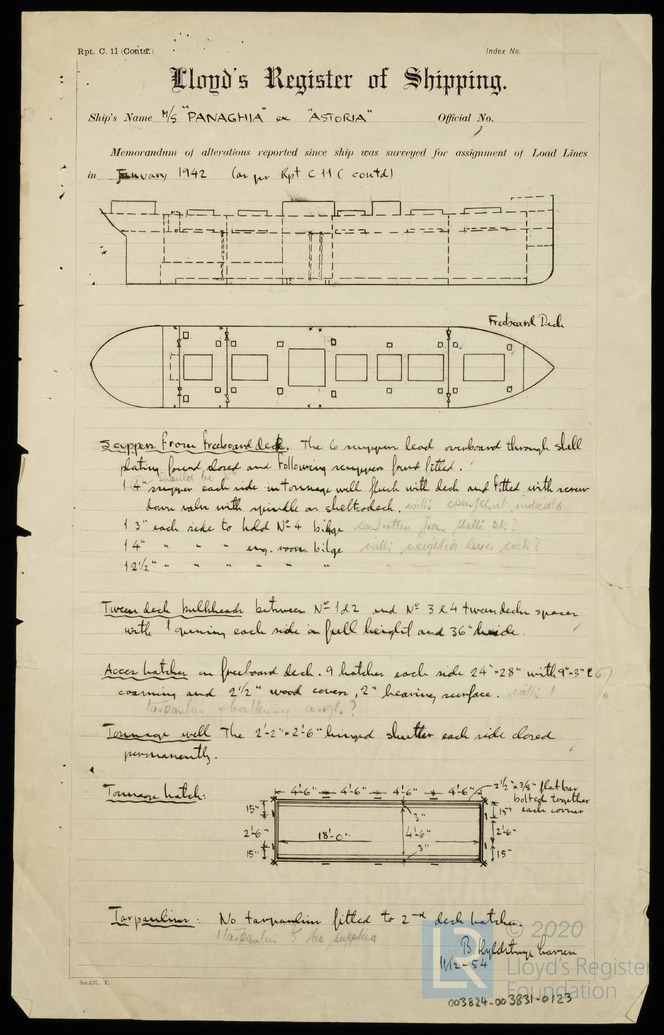 Rpt. C. 11 (Contd.)
Index No.
Lloyd's Register of Shipping.
Ship's Name M/S "PANAGHIA" ex "ASTORIA" Official No.
Memorandum of alterations reported since ship was surveyed for assignment of Load Lines
in January 1942 (as per Rpt C 11 (contd)
Freeboard Deck
Scuppers From freeboard deck. The 6 scuppers lead overboard through shell
plating found closed and following scuppers found fitted.
should be
1 4" scupper each side in tonnage well flush with deck and fitted with screw
down valve with spindle on shelterdeck. with open/shut indicators
1 3" each side to hold No 4 bilge controllable from shelter dk?
1 4" " " " eng. room bilge with weighted lever cock?
1 2½" " " " " " "
Tween deck bulkheads between No 1 & 2 and No 3 & 4 tween decks spaces
with 1 opening each side in full height and 36" wide.
Access hatches on freeboard deck. 9 hatches each side 24"-28" with 9"-3"
coaming and 2½" wood covers, 2" bearing surface. with 1
tarpaulin & battening arrgt.?
Tonnage well The 2'-2"-2'-6" hinged shutter each side closed
permanently.
Tonnage hatch:
4'-6" 4'-6" 4'-6" 4'-6"
2½" x 3/8" flat bar
bolted together
each corner
15" 3" 15"
2'-6" 18'-0" 4'-6" 2'-6"
15" 3" 15"
Tarpaulins: No tarpaulin fitted to 2nd deck hatches.
1 tarpaulin to be supplied
B.
11/12-54
© 2020
LR
Lloyd's Register
Foundation
003824-003831-0123